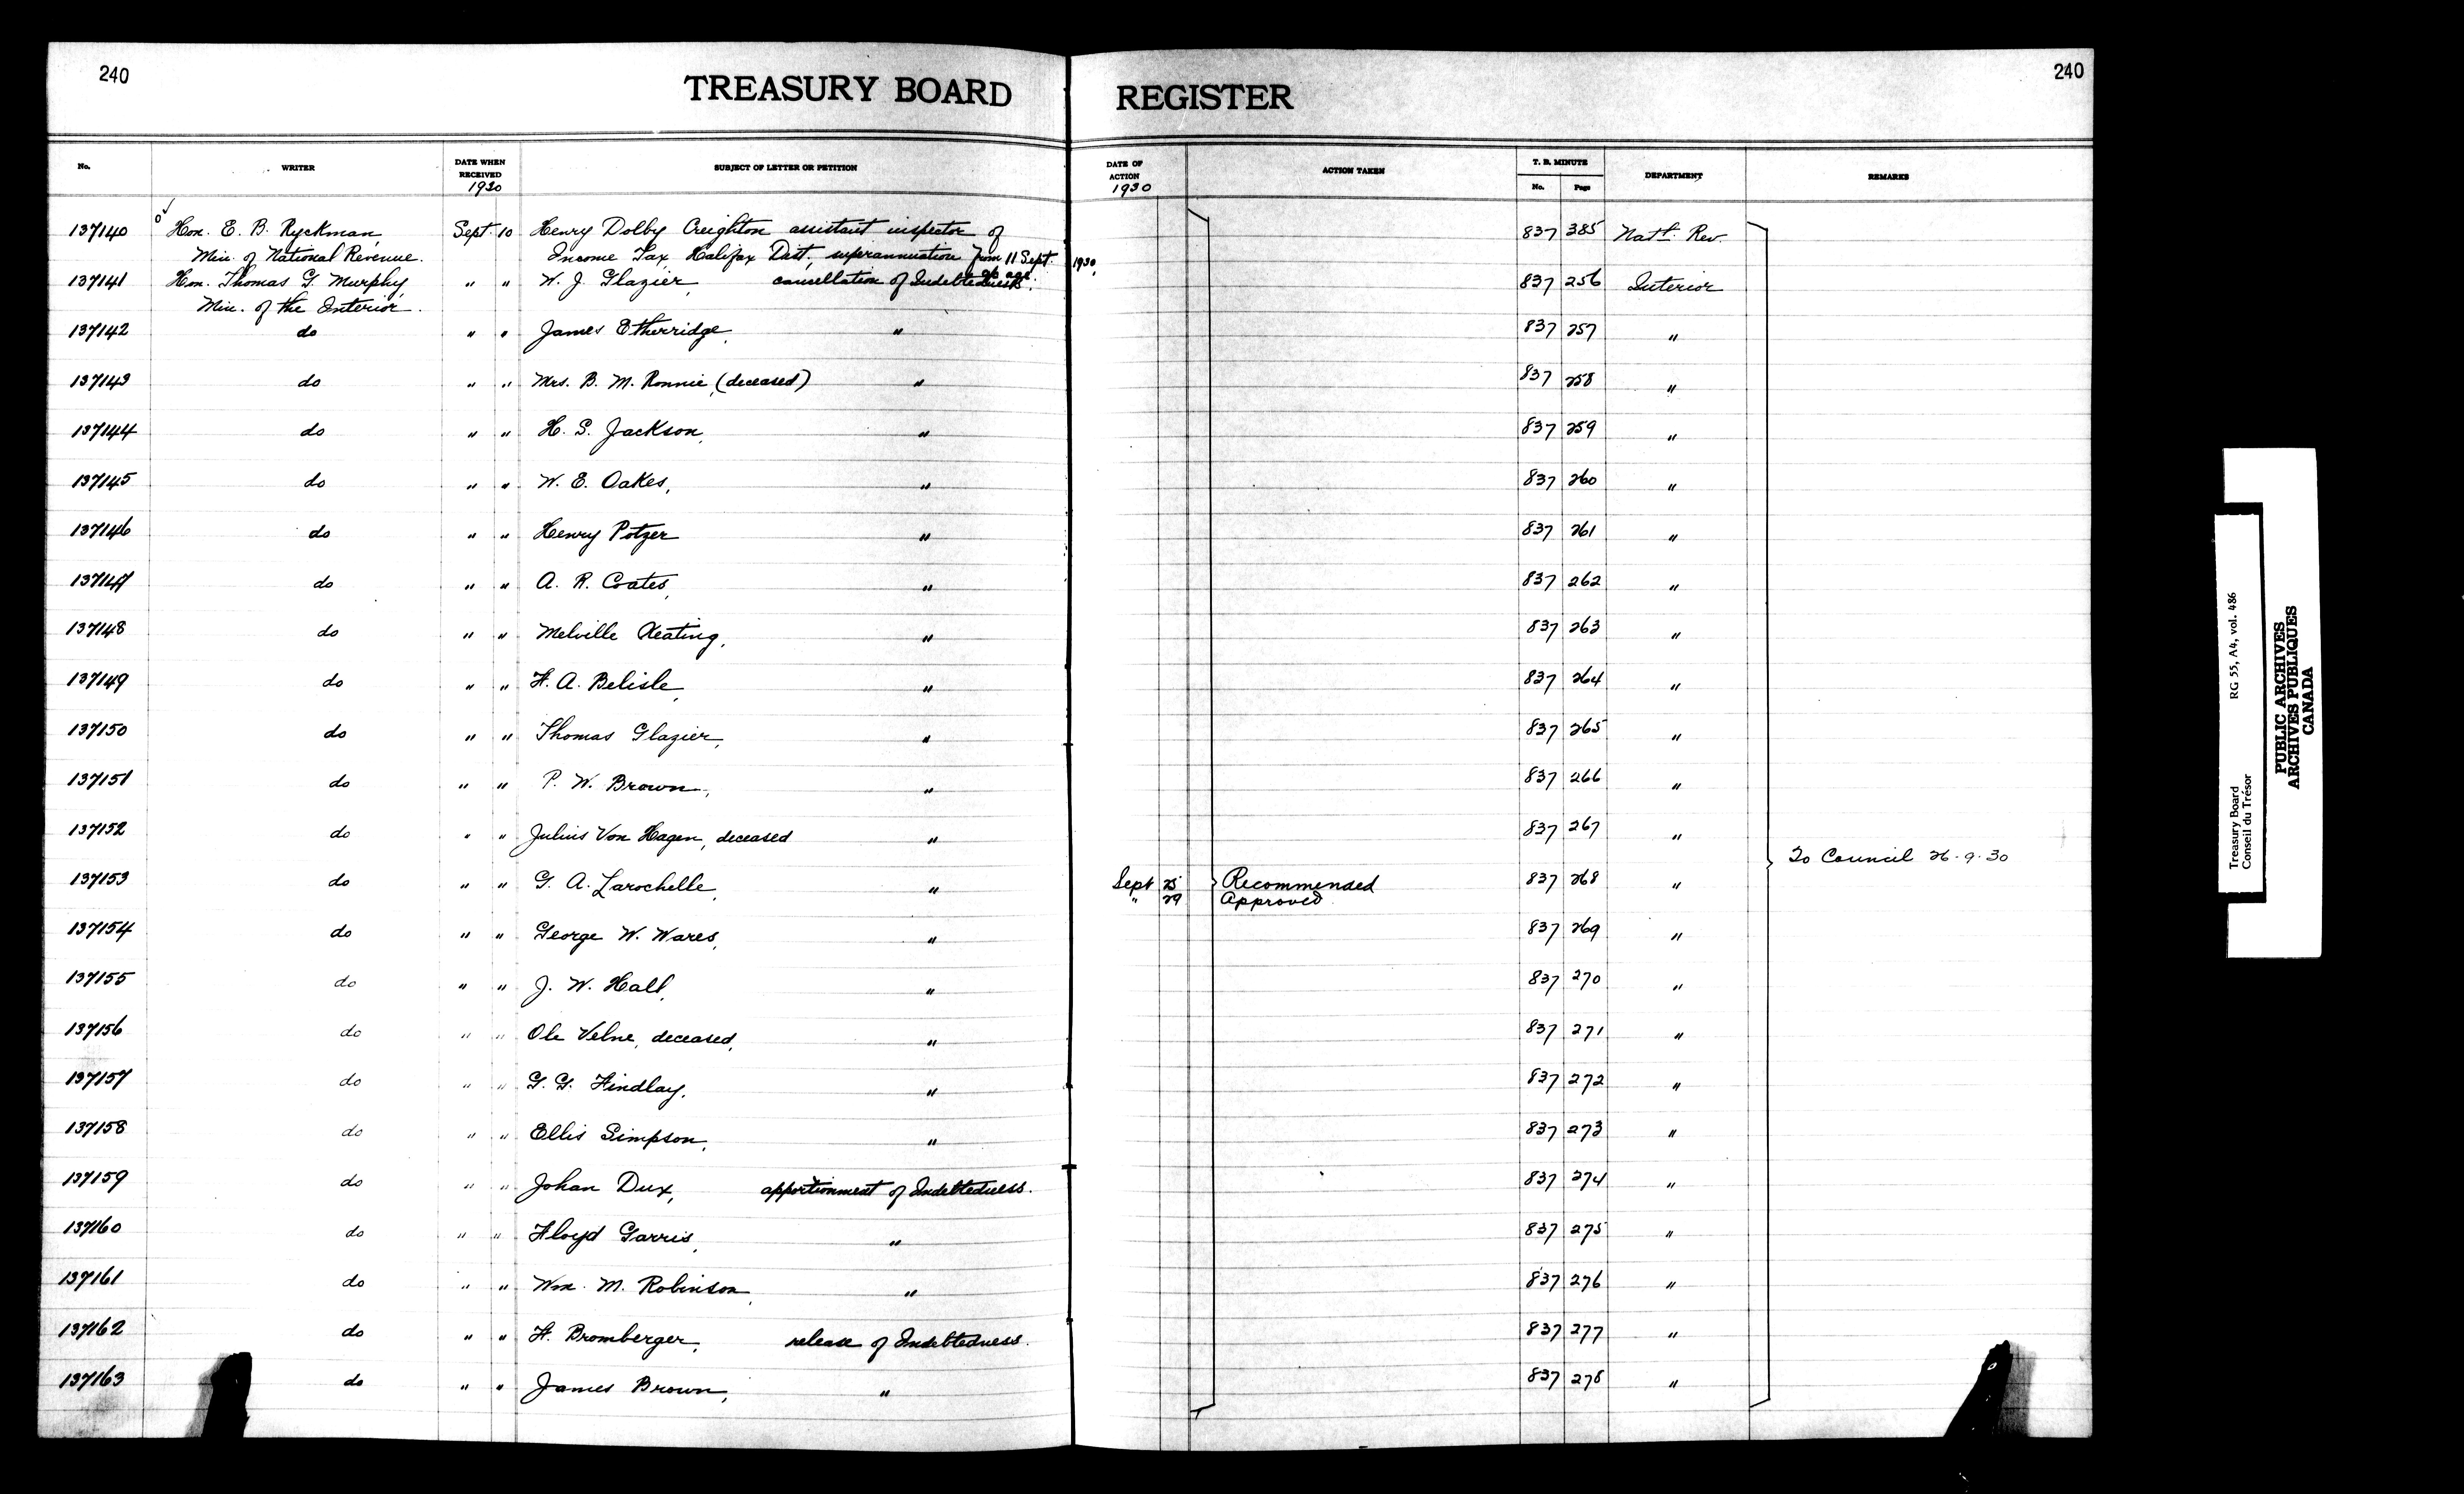 240
TREASURY BOARD REGISTER
240
No. WRITER DATE WHEN RECEIVED 1930 SUBJECT OF LETTER OR PETITION DATE OF ACTION 1930 ACTION TAKEN T. B. MINUTE No. Page DEPARTMENT REMARKS
137140 Hon. E. B. Ryckman, Sept. 10 Henry Dolby Creighton assistant inspector of 837 385 Natl. Rev.
Min. of National Revenue. Income Tax Halifax Dist., superannuation from 11 Sept. 1930,
o/c age.
137141 Hon. Thomas G. Murphy, " " W. J. Glazier, cancellation of Indebtedness. 837 256 Interior
Min. of the Interior.
137142 do " " James Etherridge, " 837 257 "
137143 do " " Mrs. B. M. Ronnie, (deceased) " 837 258 "
137144 do " " H. S. Jackson, " 837 259 "
137145 do " " W. E. Oakes, " 837 260 "
137146 do " " Henry Potzer " 837 261 "
137147 do " " A. R. Coates, " 837 262 "
137148 do " " Melville Keating, " 837 263 "
137149 do " " F. A. Belisle, " 837 264 "
137150 do " " Thomas Glazier, " 837 265 "
137151 do " " P. W. Brown, " 837 266 "
137152 do " " Julius Von Hagen, deceased " 837 267 "
To Council 26-9-30
137153 do " " G. A. Larochelle, " Sept 25 Recommended 837 268 "
" 29 Approved
137154 do " " George W. Wares, " 837 269 "
137155 do " " J. W. Hall, " 837 270 "
137156 do " " Ole Velne, deceased, " 837 271 "
137157 do " " G. G. Findlay, " 837 272 "
137158 do " " Ellis Simpson, " 837 273 "
137159 do " " Johan Dux, apportionment of Indebtedness. 837 274 "
137160 do " " Floyd Garris, " 837 275 "
137161 do " " Wm. M. Robinson, " 837 276 "
137162 do " " F. Bromberger, release of Indebtedness. 837 277 "
137163 do " " James Brown, " 837 278 "
Treasury Board RG 55, A4, vol. 486
Conseil du Trésor
PUBLIC ARCHIVES
ARCHIVES PUBLIQUES
CANADA